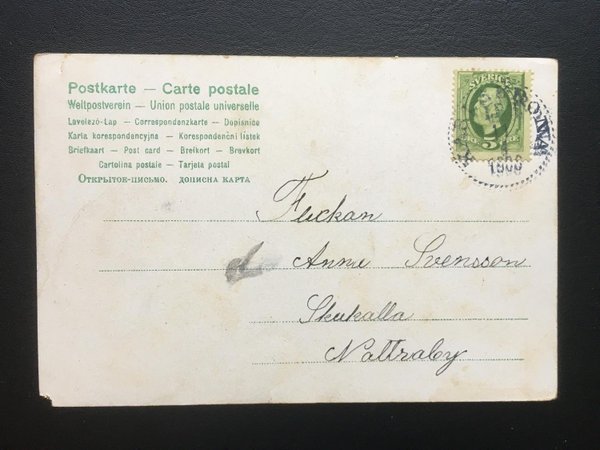 Postkarte — Carte postale
Weltpostverein — Union postale universelle
Levelező-Lap — Correspondenzkarte — Dopisnice
Karta korespondencyjna — Korespondenční lístek
Briefkaart — Post card — Brefkort — Brevkort
Cartolina postale — Tarjeta postal
Открытое-письмо. дописна карта
SVERIGE
5
1906
Flickan
Anna Svensson
Skukalla
Nattraby